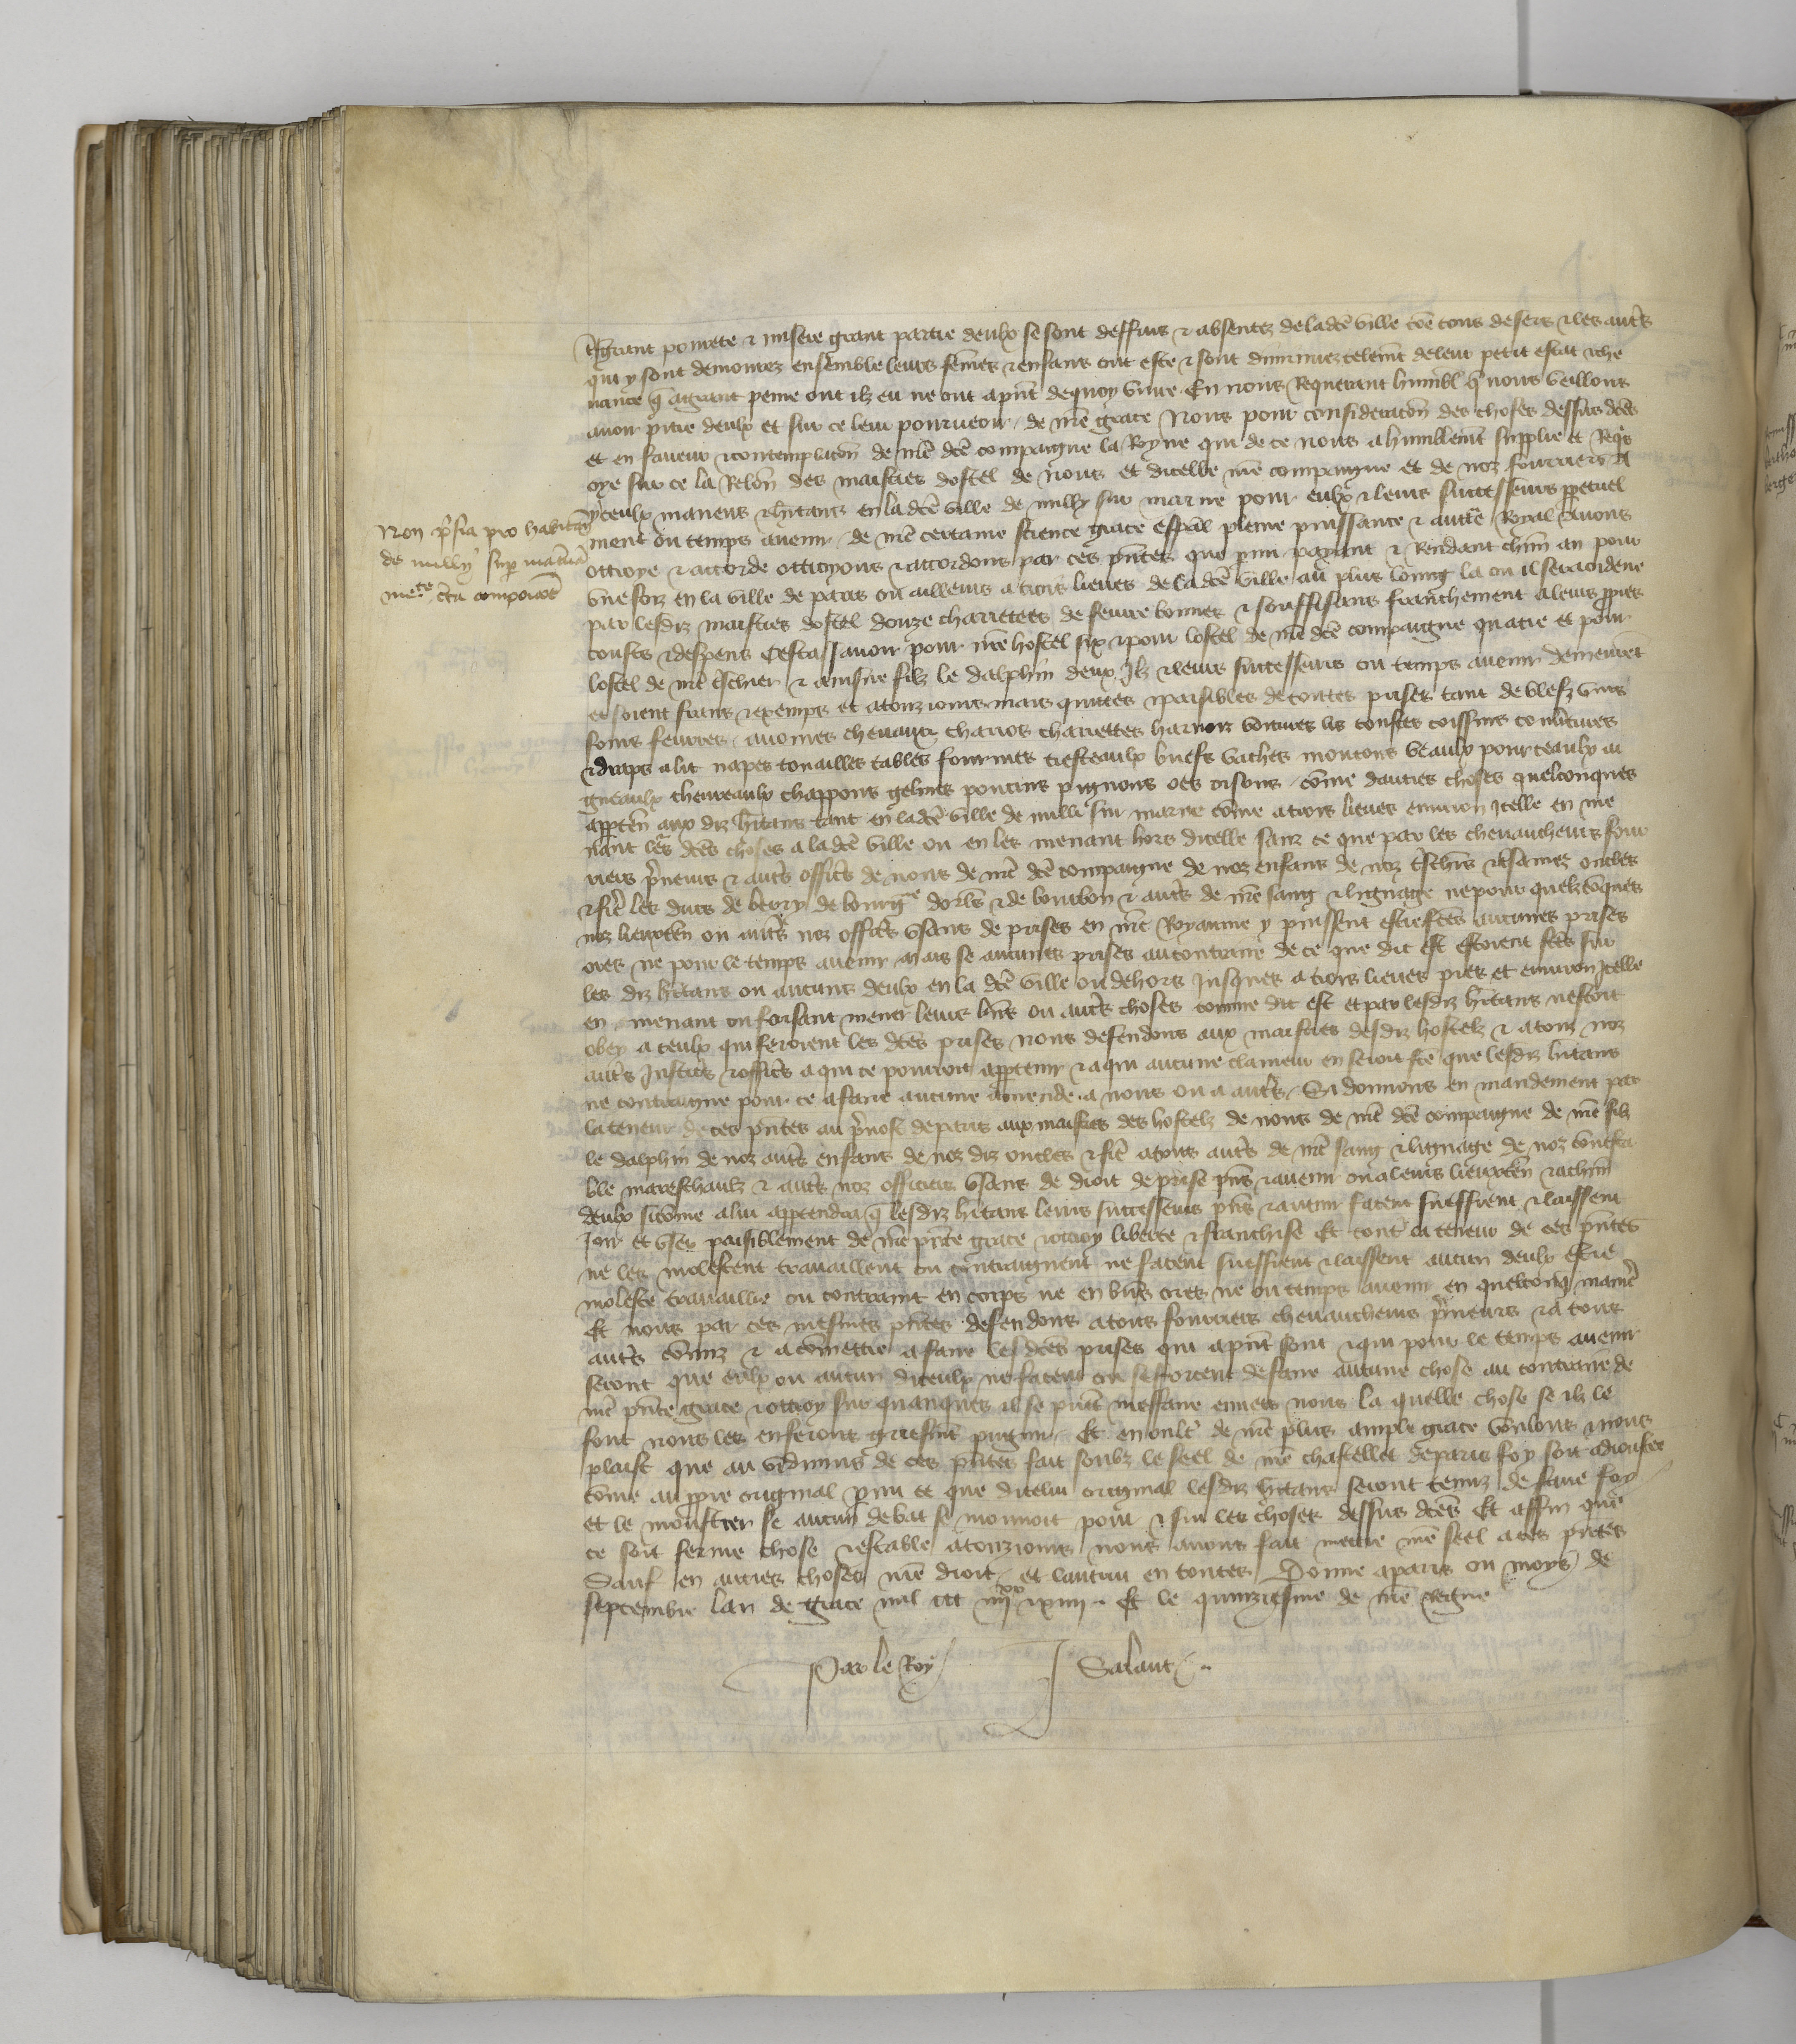 grant povrete & misere grant partie deulx se sont deffuis & absentez de ladcē ville cōe tous desers & les autr̄s
qui y sont demourez ensemble leurs fem̄es & enfans ont este & sont diminuez telemt̄ de leur petit estat & che
uance q̄ a grant peine ont ilz eu ne ont a pn̄t de quoy viure En nous Requerant humbl̄ q̄ nous veillons
auoir pitie deulx et sur ce leur pourueoir de nr̄e grace Nous pour consideracōn des choses dessus dc̄es
et en faueur & contemplacōn de nr̄e dc̄e compaigne la Royne qui de ce nous a humblemēt supplie et Reqis
oye sur ce la Relōn des maistres dostel de nous et dicelle nr̄e compaigne et de noz fourriers A
yceulx manens & hitans en ladcē ville de milly sur marne pour eulx & leurs successeurs ppetuel
ment ou temps auenir de nr̄e certaine science grace esp̄al pleine puissance & auctē Royal Auons
ottroye & accorde ottroyons & accordons par ces pn̄tes que p̄mi paiant & Rendant chūn an pour
vne foiz en la ville de paris ou ailleurs a trois lieues de ladcē ville au plus loing la ou il sera ordene
par lesdiz maistres dostel douze charretees de feurre bonnes & souffisans franchement a leurs pp̄res
cousts & despens Cestassauoir pour nr̄e hostel six & pour lostel de nr̄e dc̄e compaigne quatre et pour
lostel de nr̄e tr̄schier & ainsne filz le dalphin deux Ilz & leurs successeurs ou temps auenir demeurēt
et soient frans & exemps et a touziours mais quittes & paisibles de toutes prises tant de blefz vins
foins feurres auoines cheuaux charios charrettes harnois voitures lis coustes coissins couūrtures
& draps a lit napes touailles tables fourmes tresteaulx buefs vaches moutons veaulx pourceaulx ai
gneaulx cheureaulx chappons gelines poucins pignons oes oisons cōme dautres choses quelconques
appten̄ aux diz hītans tant en ladcē ville de milli sur marne cōme a trois lieues enuiron Icelle en me
nant les dc̄es choses a ladcē ville ou en les menant hors dicelle sanz ce que par les cheuaucheurs four
riers p̄neurs & autr̄s offic̄rs de nous de nr̄e dc̄e compaigne de noz enfans de noz tr̄schīs & tr̄samez oncles
& fr̄e les ducs de berry de bourgne dorlīs & de bourbon & autr̄s de nr̄e sang & lignage ne pour quelzcōques
noz lieuxten̄ ou autr̄s noz offic̄rs vsans de prises en nr̄e Royaume y puissent estre fc̄es aucunes prises
ores ne pour le temps auenir Mais se aucunes prises au contraire de ce que dit est estoient fc̄es sur
les diz hītans ou aucuns deulx en la dc̄e ville ou dehors Jusques a trois lieues pres et enuiron Icelle
en menant ou faisant mener leurs biens ou autr̄s choses comme dit est et par lesdiz hītans nestoit
obey a ceulx qui feroient les dc̄es prises nous defendons aux maistres desdiz hostelz & a touz noz
autr̄s Justic̄rs & offic̄rs a qui ce pourroit apptenir & a qui aucune clameur en seroit fc̄e que lesdiz hītans
ne contraigne pour ce a faire aucune amende a nous ou a autr̄s Si donnons en mandement par
la teneur de ces pn̄tes au p̄uost de paris aux maistres des hostelz de nous de nr̄e dc̄e compaigne de nr̄e filz
le dalphin de noz autr̄s enfans de noz diz oncles & fr̄e a touz autr̄s de nr̄e sang & lignage de noz cōnesta
ble mareschaulx & autr̄s noz officiers vsans de droit de prise pn̄s & auenir ou a leurs lieuxten̄ & a chūn
deulx si cōme a lui apptendra q̄ lesdiz hītans leurs successeurs pn̄s & auenir facent sueffrent & laissent
Joir et vser paisiblement de nr̄e pn̄te grace & ottroy liberte & franchise Et contre la teneur de ces pn̄tes
ne les molestent trauaillent ou contraignent ne facent sueffrent & laissent aucun deulx estre
moleste trauaillie ou contraint en corps ne en biens ores ne ou temps auenir en quelconq̄ manīe
Et nous par ces mesmes pn̄tes defendons a tous fourriers cheuaucheurs p̄neurs & a tous
autr̄s cōmiz & a cōmettre a faire lesdc̄es prises qui a pn̄t sont & qui pour le temps auenir
seront que eulx ou aucun diceulx ne facent ou sefforcent de faire aucune chose au contraire de
nr̄e pn̄te grace & ottroy sur quanques il se pēuēt meffaire enuers nous la quelle chose se ilz le
font nous les en ferons griefmēt pugnir Et en oultr̄ de nr̄e plus ample grace voulons & nous
plaist que au vidimus de ces pn̄tes fait soubz le seel de nr̄e chastellet de paris foy soit adioustee
cōme au pp̄re original p̄mi ce que dicelui original lesdiz hītans seront tenuz de faire foy
et le moustrer se aucun debat se mouuoit pour & sur les choses dessus dc̄es Et affin que
ce soit ferme chose & estable a touziours nous auons fait mettre nr̄e seel a ces pn̄tes
Sauf en autres choses nr̄e droit et lautrui en toutes Donne a paris ou moys de
septembre lan de grace mil ccc iiijxx & xiiij Et le quinziesme de nr̄e Regne
Par le Roy J Salaut
Non p̄sia pro habitān
de milly sup̄ matrnā